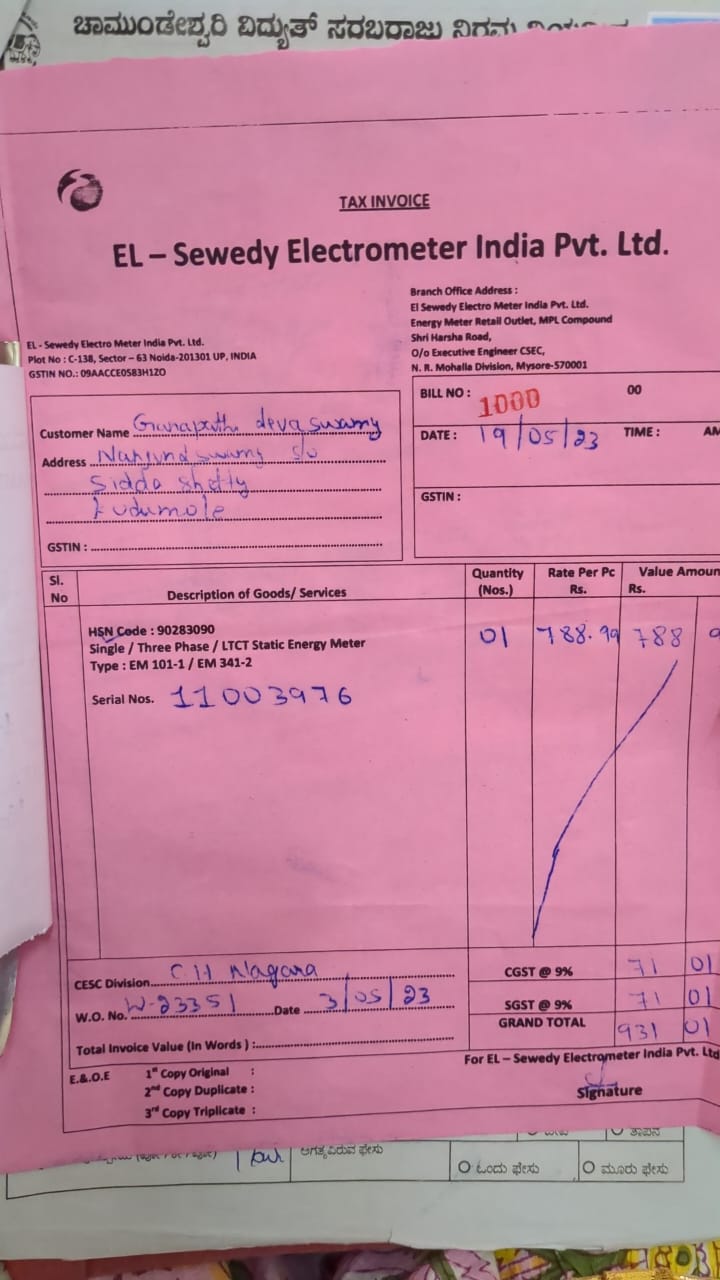 ಚಾಮುಂಡೇಶ್ವರಿ ವಿದ್ಯುತ್ ಸರಬರಾಜು ನಿಗಮ
TAX INVOICE
EL – Sewedy Electrometer India Pvt. Ltd.
EL - Sewedy Electro Meter India Pvt. Ltd.
Plot No : C-138, Sector – 63 Noida-201301 UP, INDIA
GSTIN NO.: 09AACCE0583H1ZO
Branch Office Address :
El Sewedy Electro Meter India Pvt. Ltd.
Energy Meter Retail Outlet, MPL Compound
Shri Harsha Road,
O/o Executive Engineer CSEC,
N. R. Mohalla Division, Mysore-570001
Customer Name deva swamy
Address Nanjundswamy s/o
Sidda shetty
kudumole
GSTIN :
BILL NO : 1000 00
DATE : 19/05/23 TIME : AM
GSTIN :
Sl. No Description of Goods/ Services Quantity (Nos.) Rate Per Pc Rs. Value Amoun Rs.
HSN Code : 90283090
Single / Three Phase / LTCT Static Energy Meter 01 788.99 788 9
Type : EM 101-1 / EM 341-2
Serial Nos. 11003976
CESC Division C H Nagara
W.O. No. W-23351 Date 3/05/23
Total Invoice Value (In Words ) :
CGST @ 9% 71 01
SGST @ 9% 71 01
GRAND TOTAL 931 01
For EL – Sewedy Electrometer India Pvt. Ltd
Signature
E.& .O.E 1st Copy Original :
2nd Copy Duplicate :
3rd Copy Triplicate :
ಅಗತ್ಯವಿರುವ ಫೇಸು
ಒಂದು ಫೇಸು
ಮೂರು ಫೇಸು